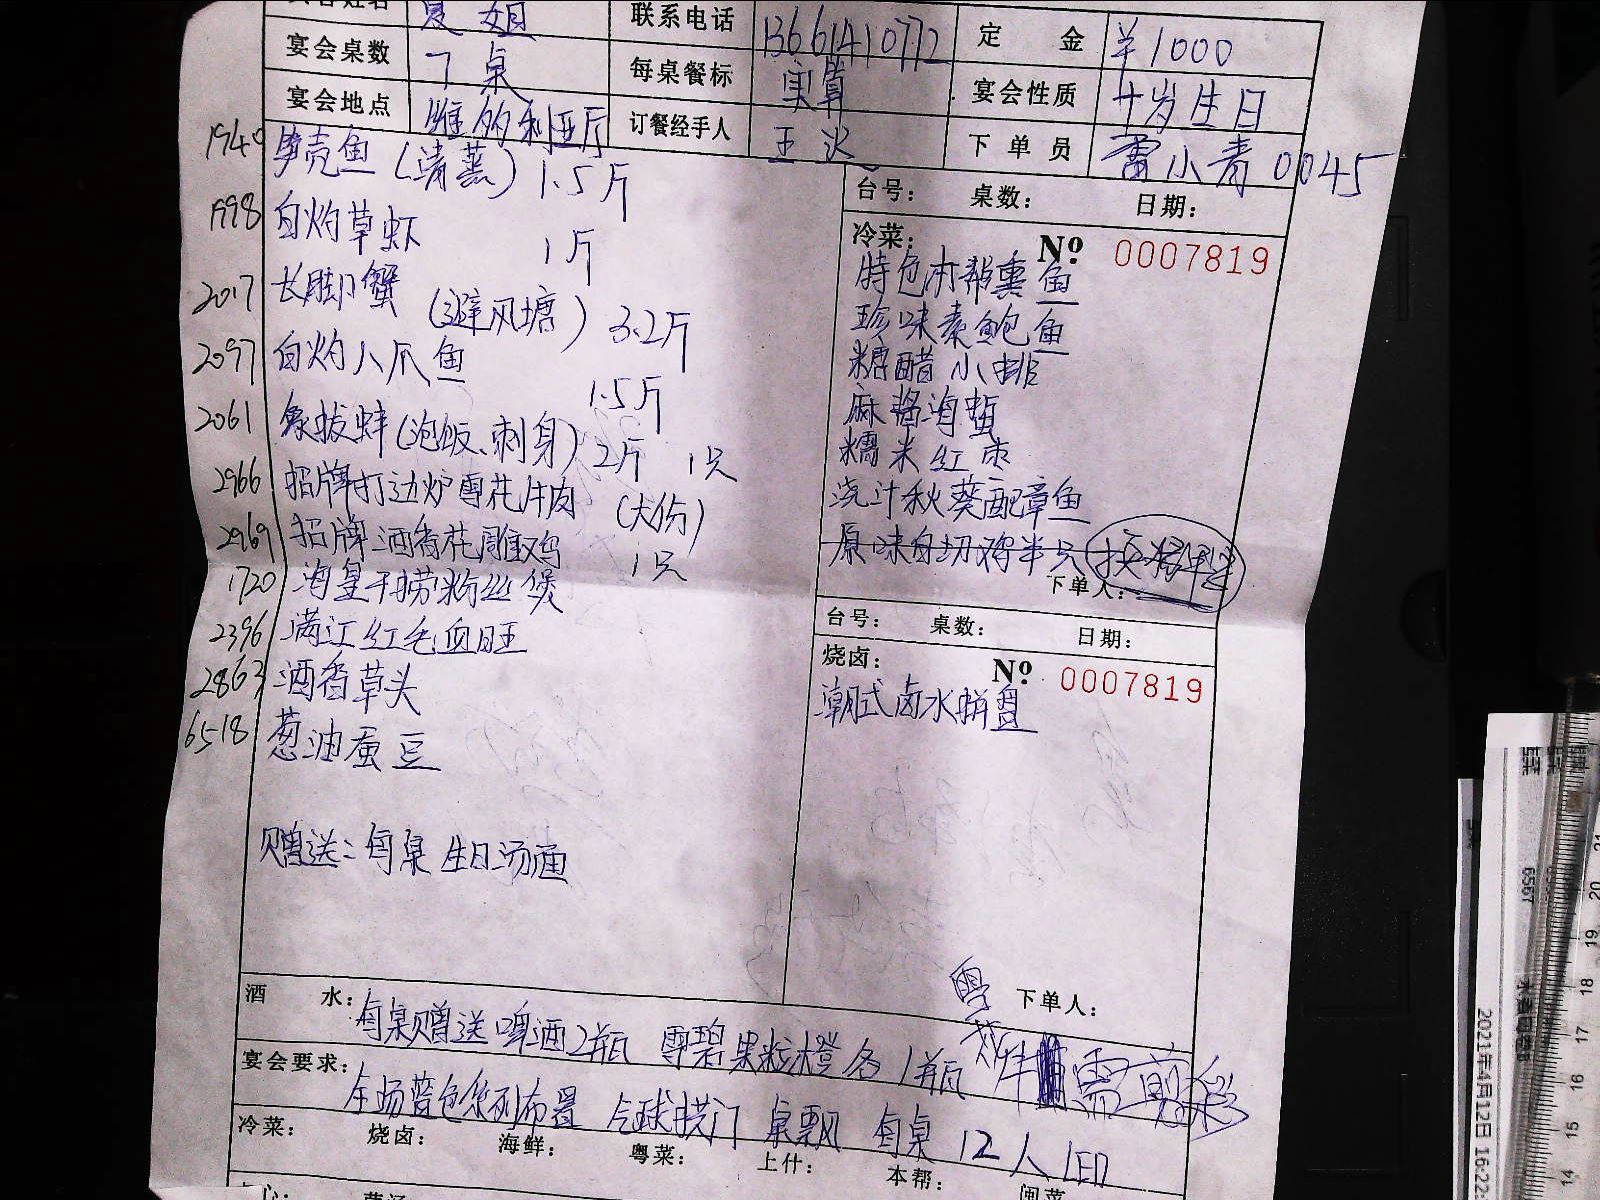 联系电话 13661410772 定 金 ¥1000
宴会桌数 7桌 每桌餐标 实算 宴会性质 十岁生日
宴会地点 维多利亚厅 订餐经手人 王 下单员 雷小青 0045
1940 笋壳鱼（清蒸）1.5斤
1998 白灼草虾 1斤
2017 长脚蟹（避风塘）3.2斤
2097 白灼八爪鱼 1.5斤
2061 象拔蚌（泡饭、刺身）2斤 1只
2966 招牌打边炉雪花牛肉（大份）
2969 招牌酒香花雕鸡 1只
1720 海皇干捞粉丝煲
2396 满江红毛血旺
2863 酒香草头
6518 葱油蚕豆
赠送：每桌生日汤面
台号： 桌数： 日期：
冷菜： Nº 0007819
特色本帮熏鱼
珍味素鲍鱼
糖醋小排
麻酱海蜇
糯米红枣
浇汁秋葵配章鱼
原味白切鸡半只
下单人：
台号： 桌数： 日期：
烧卤： Nº 0007819
潮式卤水拼盘
下单人：
酒 水：每桌赠送啤酒2瓶 雪碧果粒橙各1瓶
需剪彩
宴会要求：全场蓝色系列布置 气球拱门 桌飘 每桌12人位 LED
冷菜： 烧卤： 海鲜： 粤菜： 上什： 本帮： 闽菜
6567
2021年4月12日 16:22:
21
20
19
18
17
16
15
14